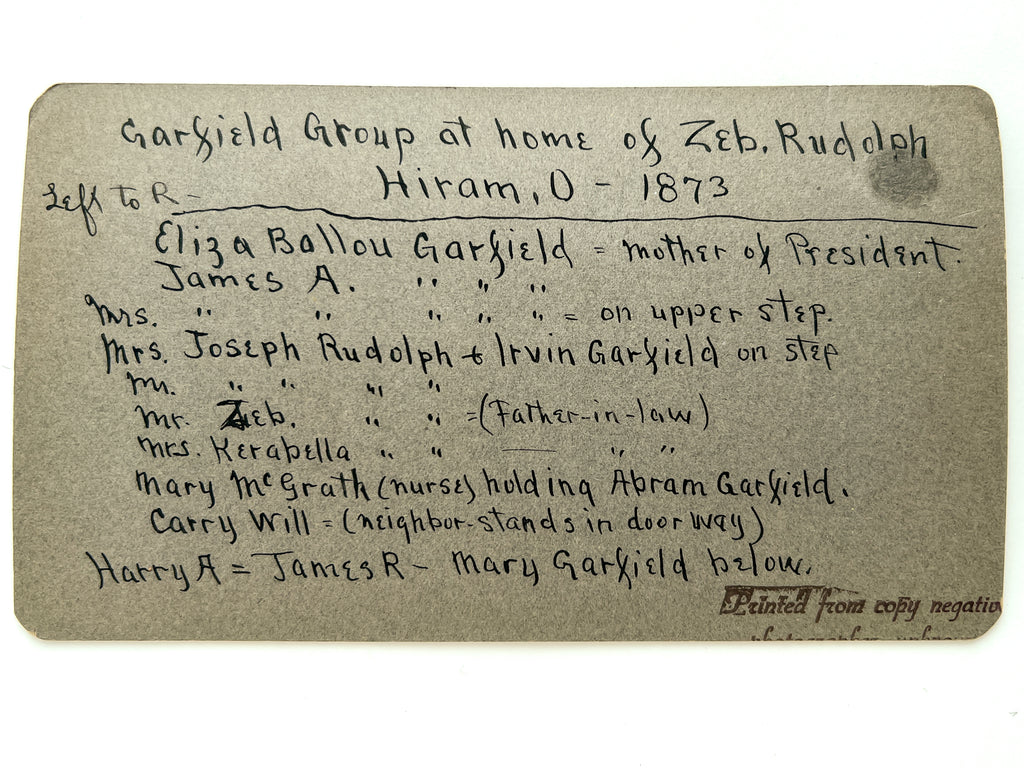 Garfield Group at home of Zeb. Rudolph
Hiram, O - 1873
Left to R -
Eliza Ballou Garfield = mother of President.
James A. " " "
Mrs. " " " " " = on upper step.
Mrs. Joseph Rudolph + Irvin Garfield on step
Mr. " " " "
Mr. Zeb. " " = (Father-in-law)
Mrs. Kerabella " " — " "
Mary McGrath (nurse) holding Abram Garfield.
Carry Will = (neighbor-stands in door way)
Harry A = James R - Mary Garfield below.
Printed from copy negativ